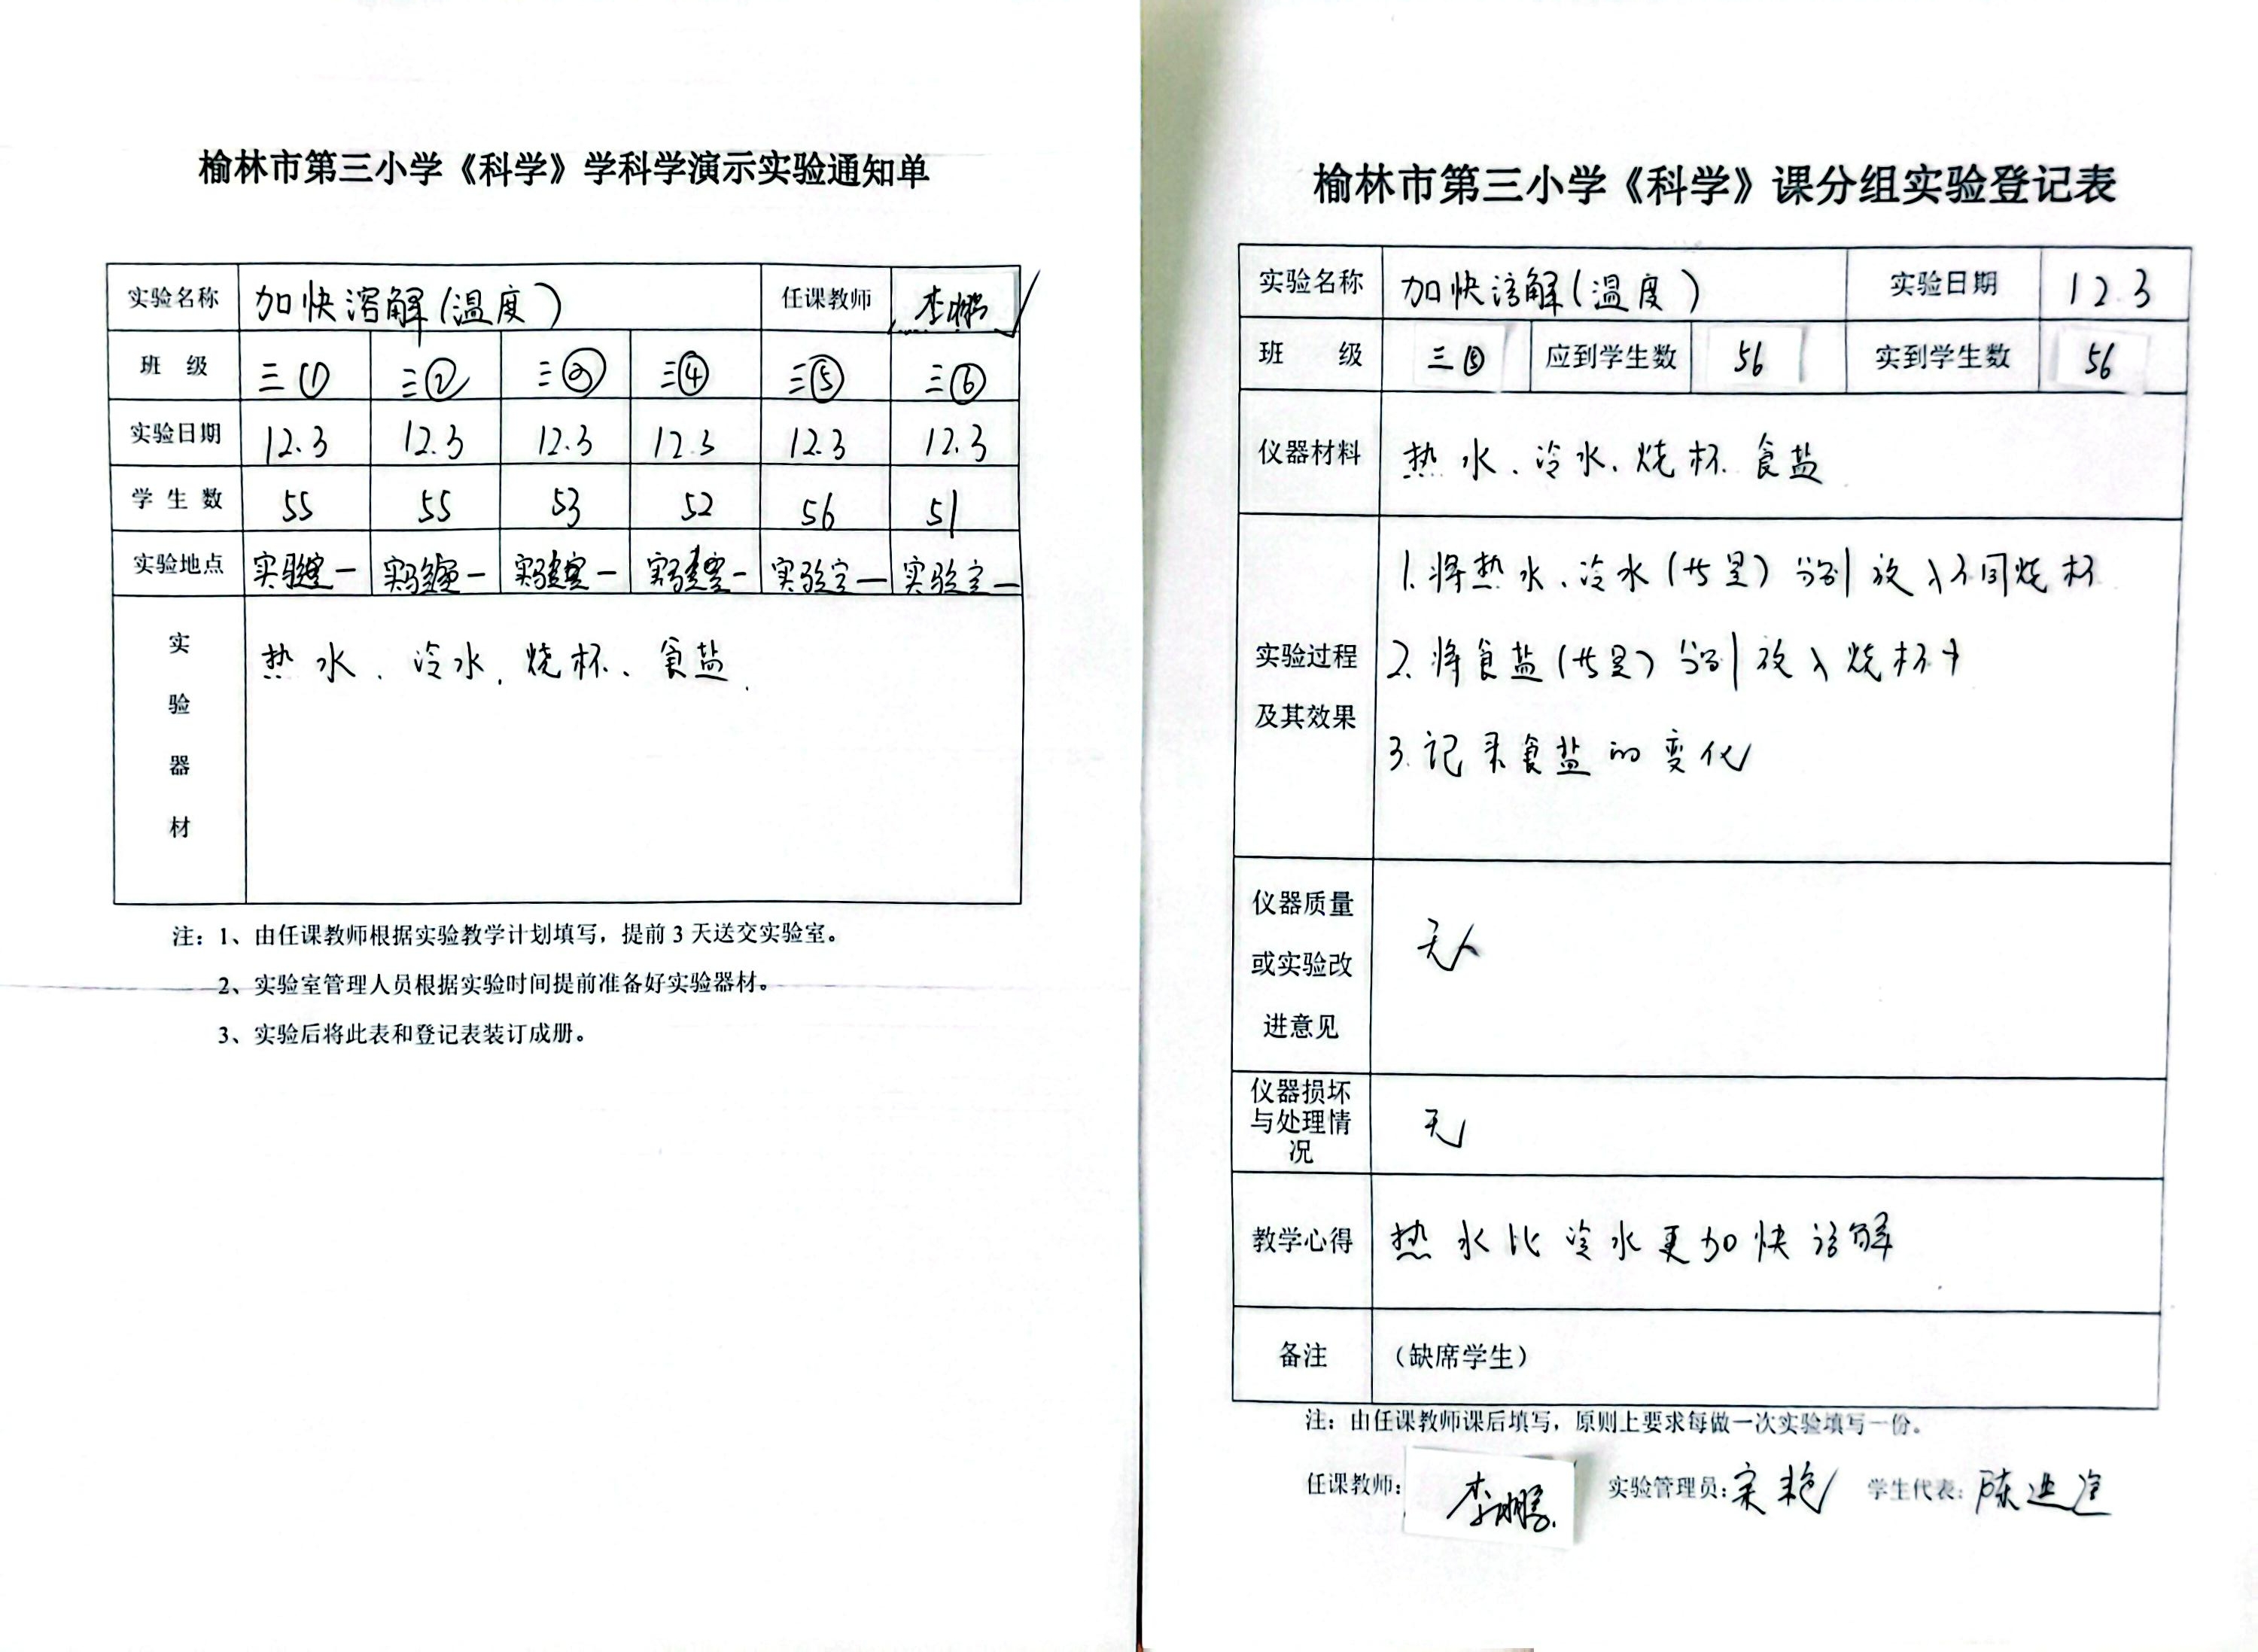 榆林市第三小学《科学》学科学演示实验通知单
实验名称 加快溶解(温度) 任课教师 李鹏
班 级 三① 三② 三③ 三④ 三⑤ 三⑥
实验日期 12.3 12.3 12.3 12.3 12.3 12.3
学生数 55 55 53 52 56 51
实验地点 实验室一 实验室一 实验室一 实验室一 实验室一 实验室一
实验器材 热水、冷水、烧杯、食盐.
注:1、由任课教师根据实验教学计划填写,提前3天送交实验室。
2、实验室管理人员根据实验时间提前准备好实验器材。
3、实验后将此表和登记表装订成册。
榆林市第三小学《科学》课分组实验登记表
实验名称 加快溶解(温度) 实验日期 12.3
班 级 三⑤ 应到学生数 56 实到学生数 56
仪器材料 热水、冷水、烧杯、食盐
实验过程及其效果
1.将热水、冷水(等量)分别放入不同烧杯
2.将食盐(等量)分别放入烧杯中
3.记录食盐的变化
仪器质量或实验改进意见 无
仪器损坏与处理情况 无
教学心得 热水比冷水更加快溶解
备注 (缺席学生)
注:由任课教师课后填写,原则上要求每做一次实验填写一份。
任课教师: 李鹏 实验管理员: 宋艳 学生代表: 陈